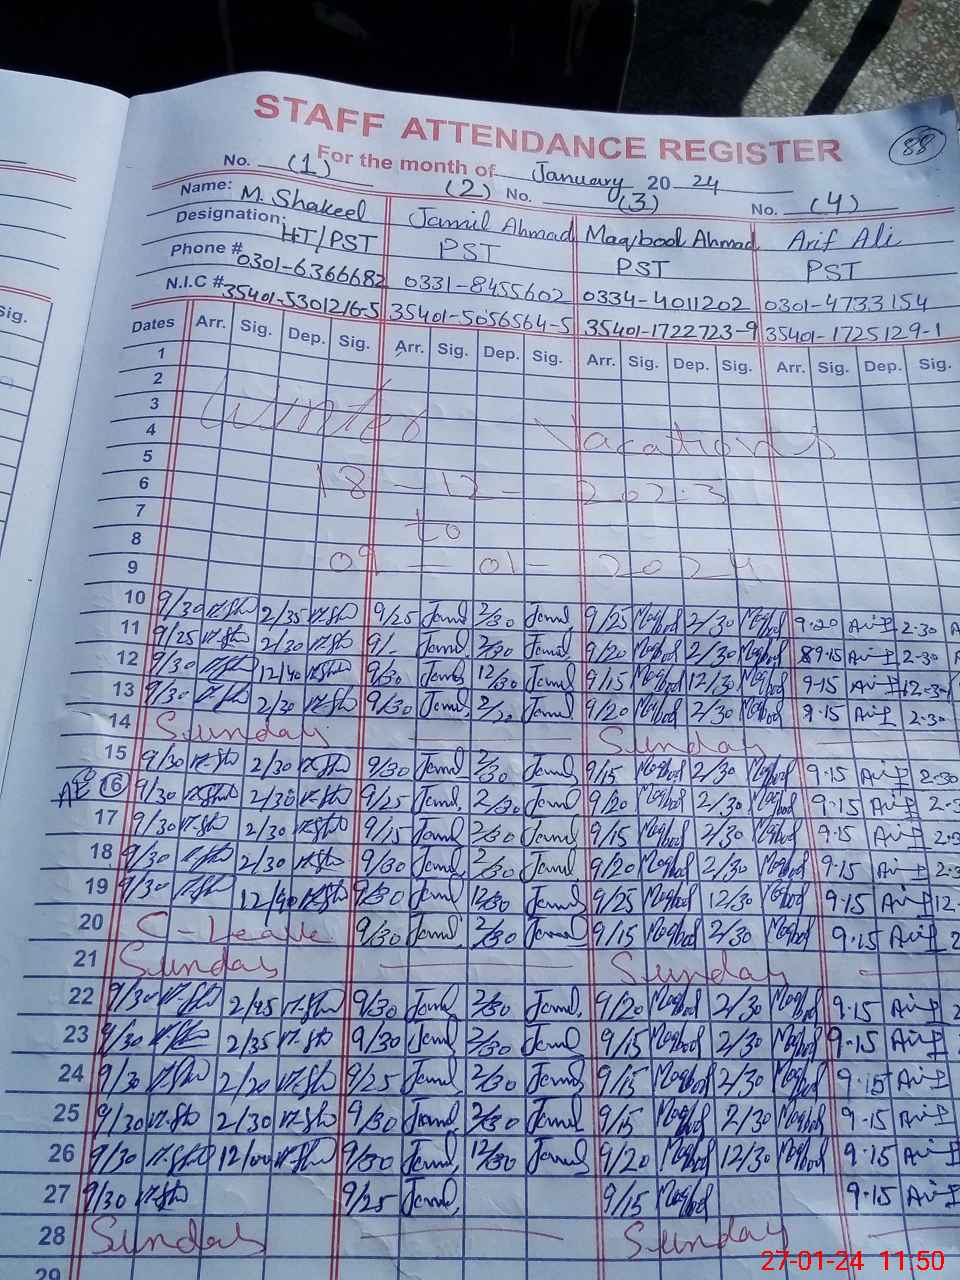 STAFF ATTENDANCE REGISTER
88
For the month of January 2024
No. (1) (2) No. (3) No. (4)
Name: M. Shakeel Jamil Ahmad Maqbool Ahmad Arif Ali
Designation: HT/PST PST PST PST
Phone # 0301-6366682 0331-8455602 0334-4011202 0301-4733154
N.I.C # 35401-5301216-5 35401-5056564-5 35401-1722723-9 35401-1725129-1
Sig.
Dates Arr. Sig. Dep. Sig. Arr. Sig. Dep. Sig. Arr. Sig. Dep. Sig. Arr. Sig. Dep. Sig.
1
2
3 Winter Vacations
4
5
6 18-12-2023
7
8 to
9 09-01-2024
10 9/30 2/35 9/25 Jamil 2/30 Jamil 9/25 Maqbool 2/30 Maqbool 9.20 Arif 2.30
11 9/25 2/30 9/- Jamil 2/30 Jamil 9/20 Maqbool 2/30 Maqbool 9.15 Arif 2.30
12 9/30 12/40 9/30 Jamil 12/30 Jamil 9/15 Maqbool 12/30 Maqbool 9.15 Arif
13 9/30 2/30 9/30 Jamil Jamil 9/20 Maqbool 2/30 Maqbool 9.15 Arif 2.30
14 Sunday Sunday
15 9/30 2/30 9/30 Jamil 2/30 Jamil 9/15 Maqbool 2/30 Maqbool 9.15 Arif 2.30
16 9/30 2/30 9/25 Jamil 2/30 Jamil 9/20 Maqbool 2/30 Maqbool 9.15 Arif
17 9/30 2/30 9/15 Jamil 2/30 Jamil 9/15 Maqbool 2/30 Maqbool 9.15 Arif
18 9/30 2/30 9/30 Jamil 2/30 Jamil 9/20 Maqbool 2/30 Maqbool 9.15 Arif
19 9/30 12/40 9/30 Jamil 12/30 Jamil 9/25 Maqbool 12/30 Maqbool 9.15 Arif
20 C-Leave 9/30 Jamil 2/30 Jamil 9/15 Maqbool 2/30 Maqbool 9.15 Arif
21 Sunday Sunday
22 9/30 2/45 9/30 Jamil 2/30 Jamil 9/20 Maqbool 2/30 Maqbool 9.15 Arif
23 9/30 2/35 9/30 Jamil 2/30 Jamil 9/15 Maqbool 2/30 Maqbool 9.15 Arif
24 9/30 2/20 9/25 Jamil 2/30 Jamil 9/15 Maqbool 2/30 Maqbool 9.15 Arif
25 9/30 2/30 9/30 Jamil 2/30 Jamil 9/15 Maqbool 2/30 Maqbool 9.15 Arif
26 9/30 12/00 9/30 Jamil 12/30 Jamil 9/20 Maqbool 12/30 Maqbool 9.15 Arif
27 9/30 9/25 Jamil 9/15 Maqbool 9.15 Arif
28 Sunday Sunday
29
27-01-24 11:50